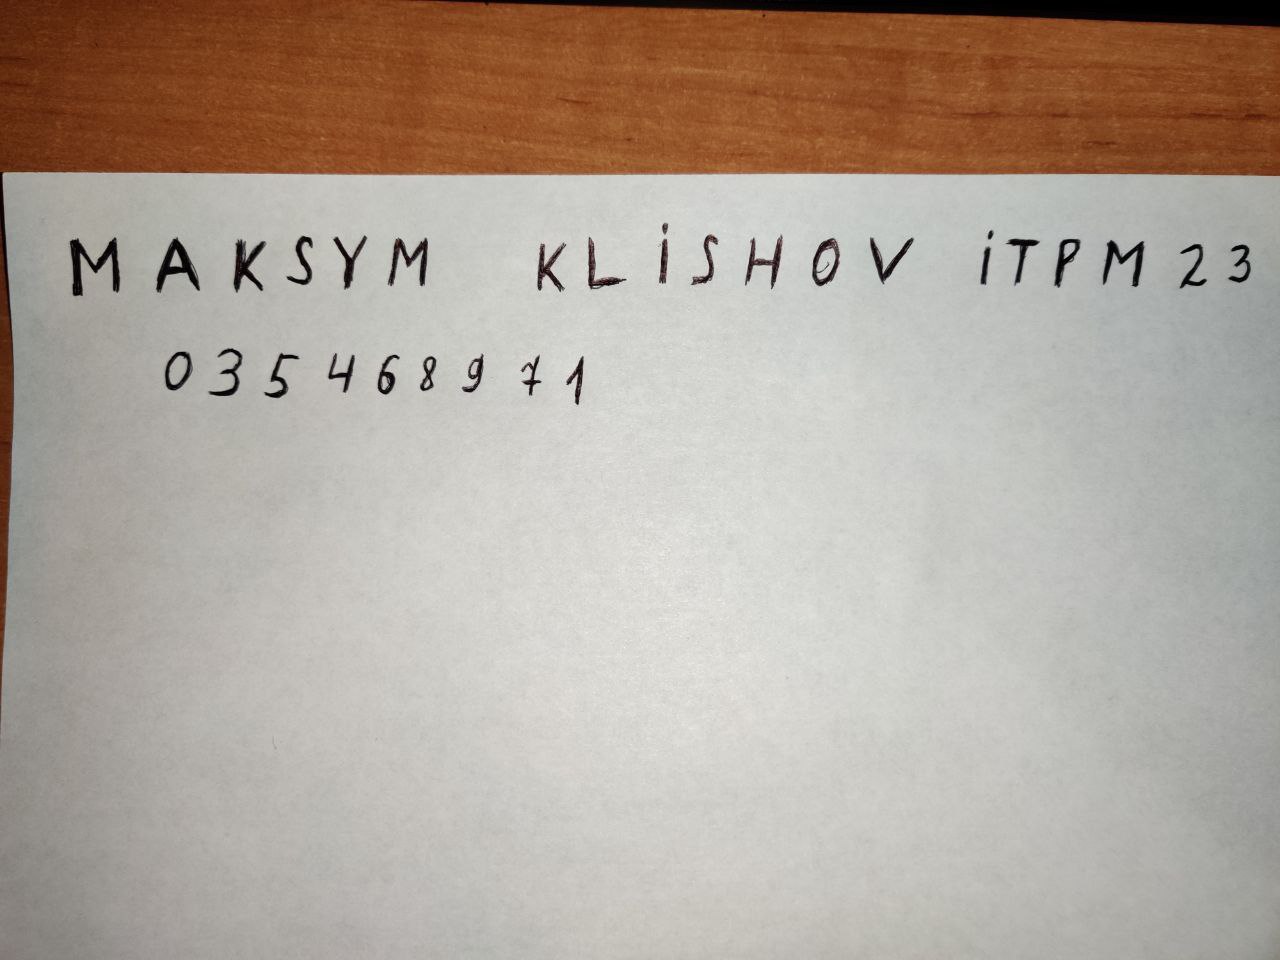 MAKSYM KLiSHOV iTPM23
035468971